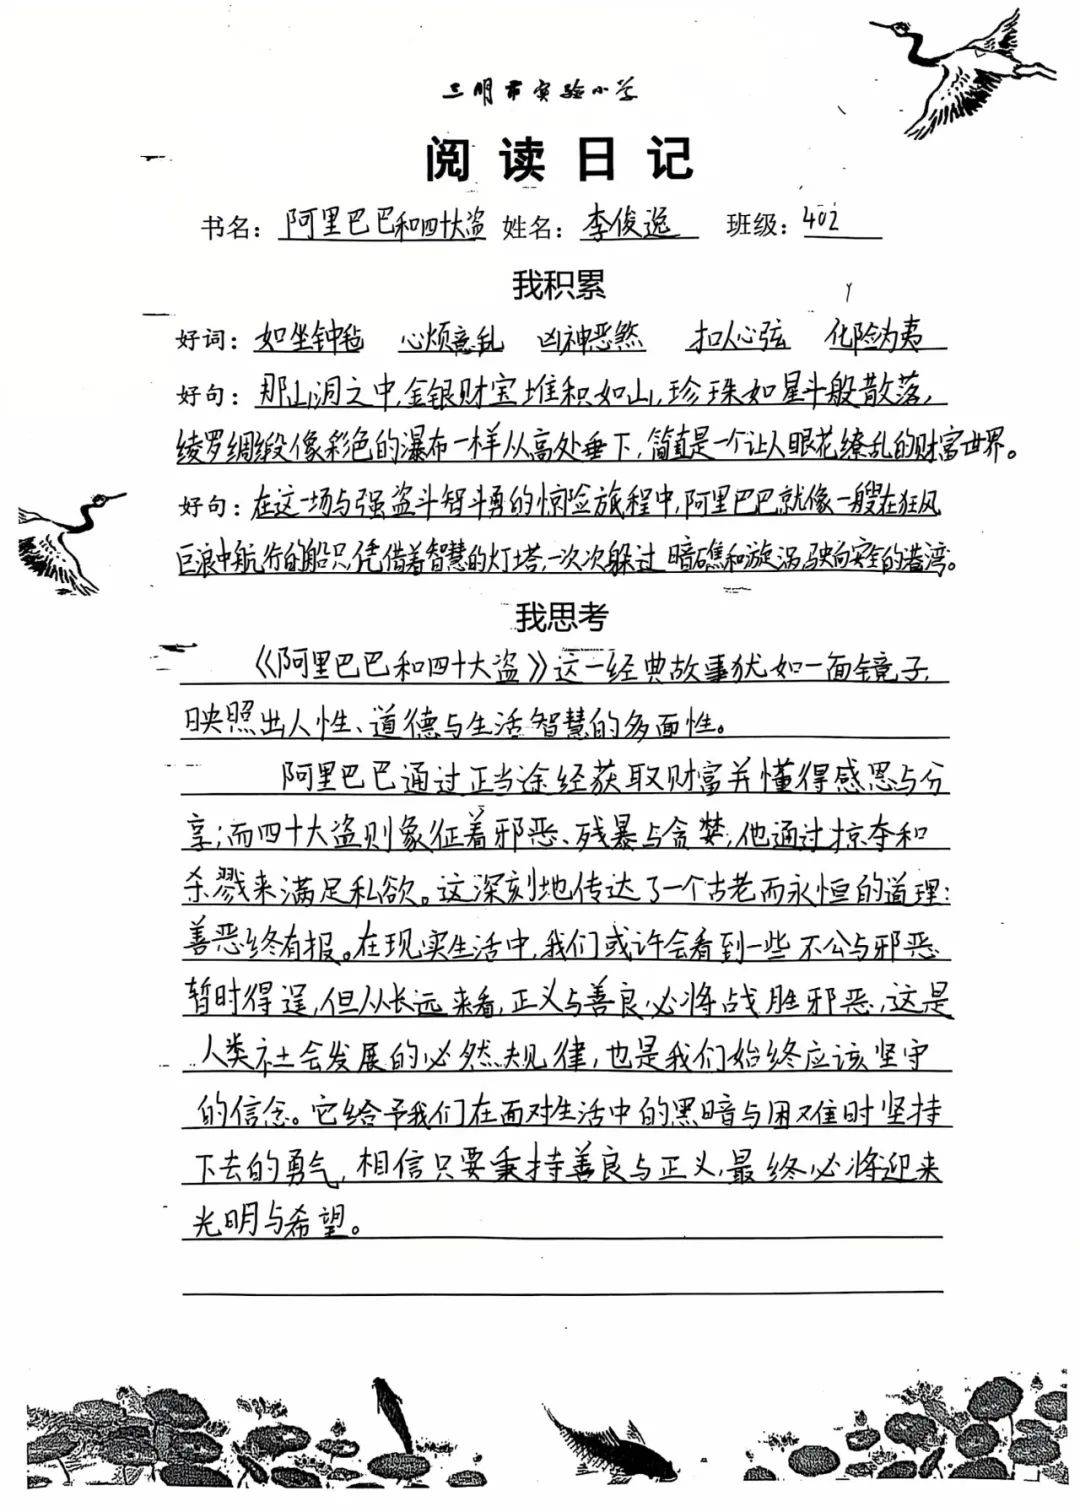 三明市实验小学
阅读日记
书名：阿里巴巴和四十大盗 姓名：李俊逸 班级：402
我积累
好词：如坐针毡 心烦意乱 凶神恶煞 扣人心弦 化险为夷
好句：那山洞之中,金银财宝堆积如山,珍珠如星斗般散落,
绫罗绸缎像彩色的瀑布一样从高处垂下,简直是一个让人眼花缭乱的财富世界。
好句：在这一场与强盗斗智斗勇的惊险旅程中,阿里巴巴就像一艘在狂风
巨浪中航行的船只,凭借着智慧的灯塔,一次次躲过暗礁和旋涡,驶向安全的港湾。
我思考
《阿里巴巴和四十大盗》这一经典故事犹如一面镜子,
映照出人性、道德与生活智慧的多面性。
阿里巴巴通过正当途经获取财富并懂得感恩与分
享;而四十大盗则象征着邪恶、残暴与贪婪,他通过掠夺和
杀戮来满足私欲。这深刻地传达了一个古老而永恒的道理:
善恶终有报。在现实生活中,我们或许会看到一些不公与邪恶
暂时得逞,但从长远来看,正义与善良必将战胜邪恶,这是
人类社会发展的必然规律,也是我们始终应该坚守
的信念。它给予我们在面对生活中的黑暗与困难时坚持
下去的勇气,相信只要秉持善良与正义,最终必将迎来
光明与希望。